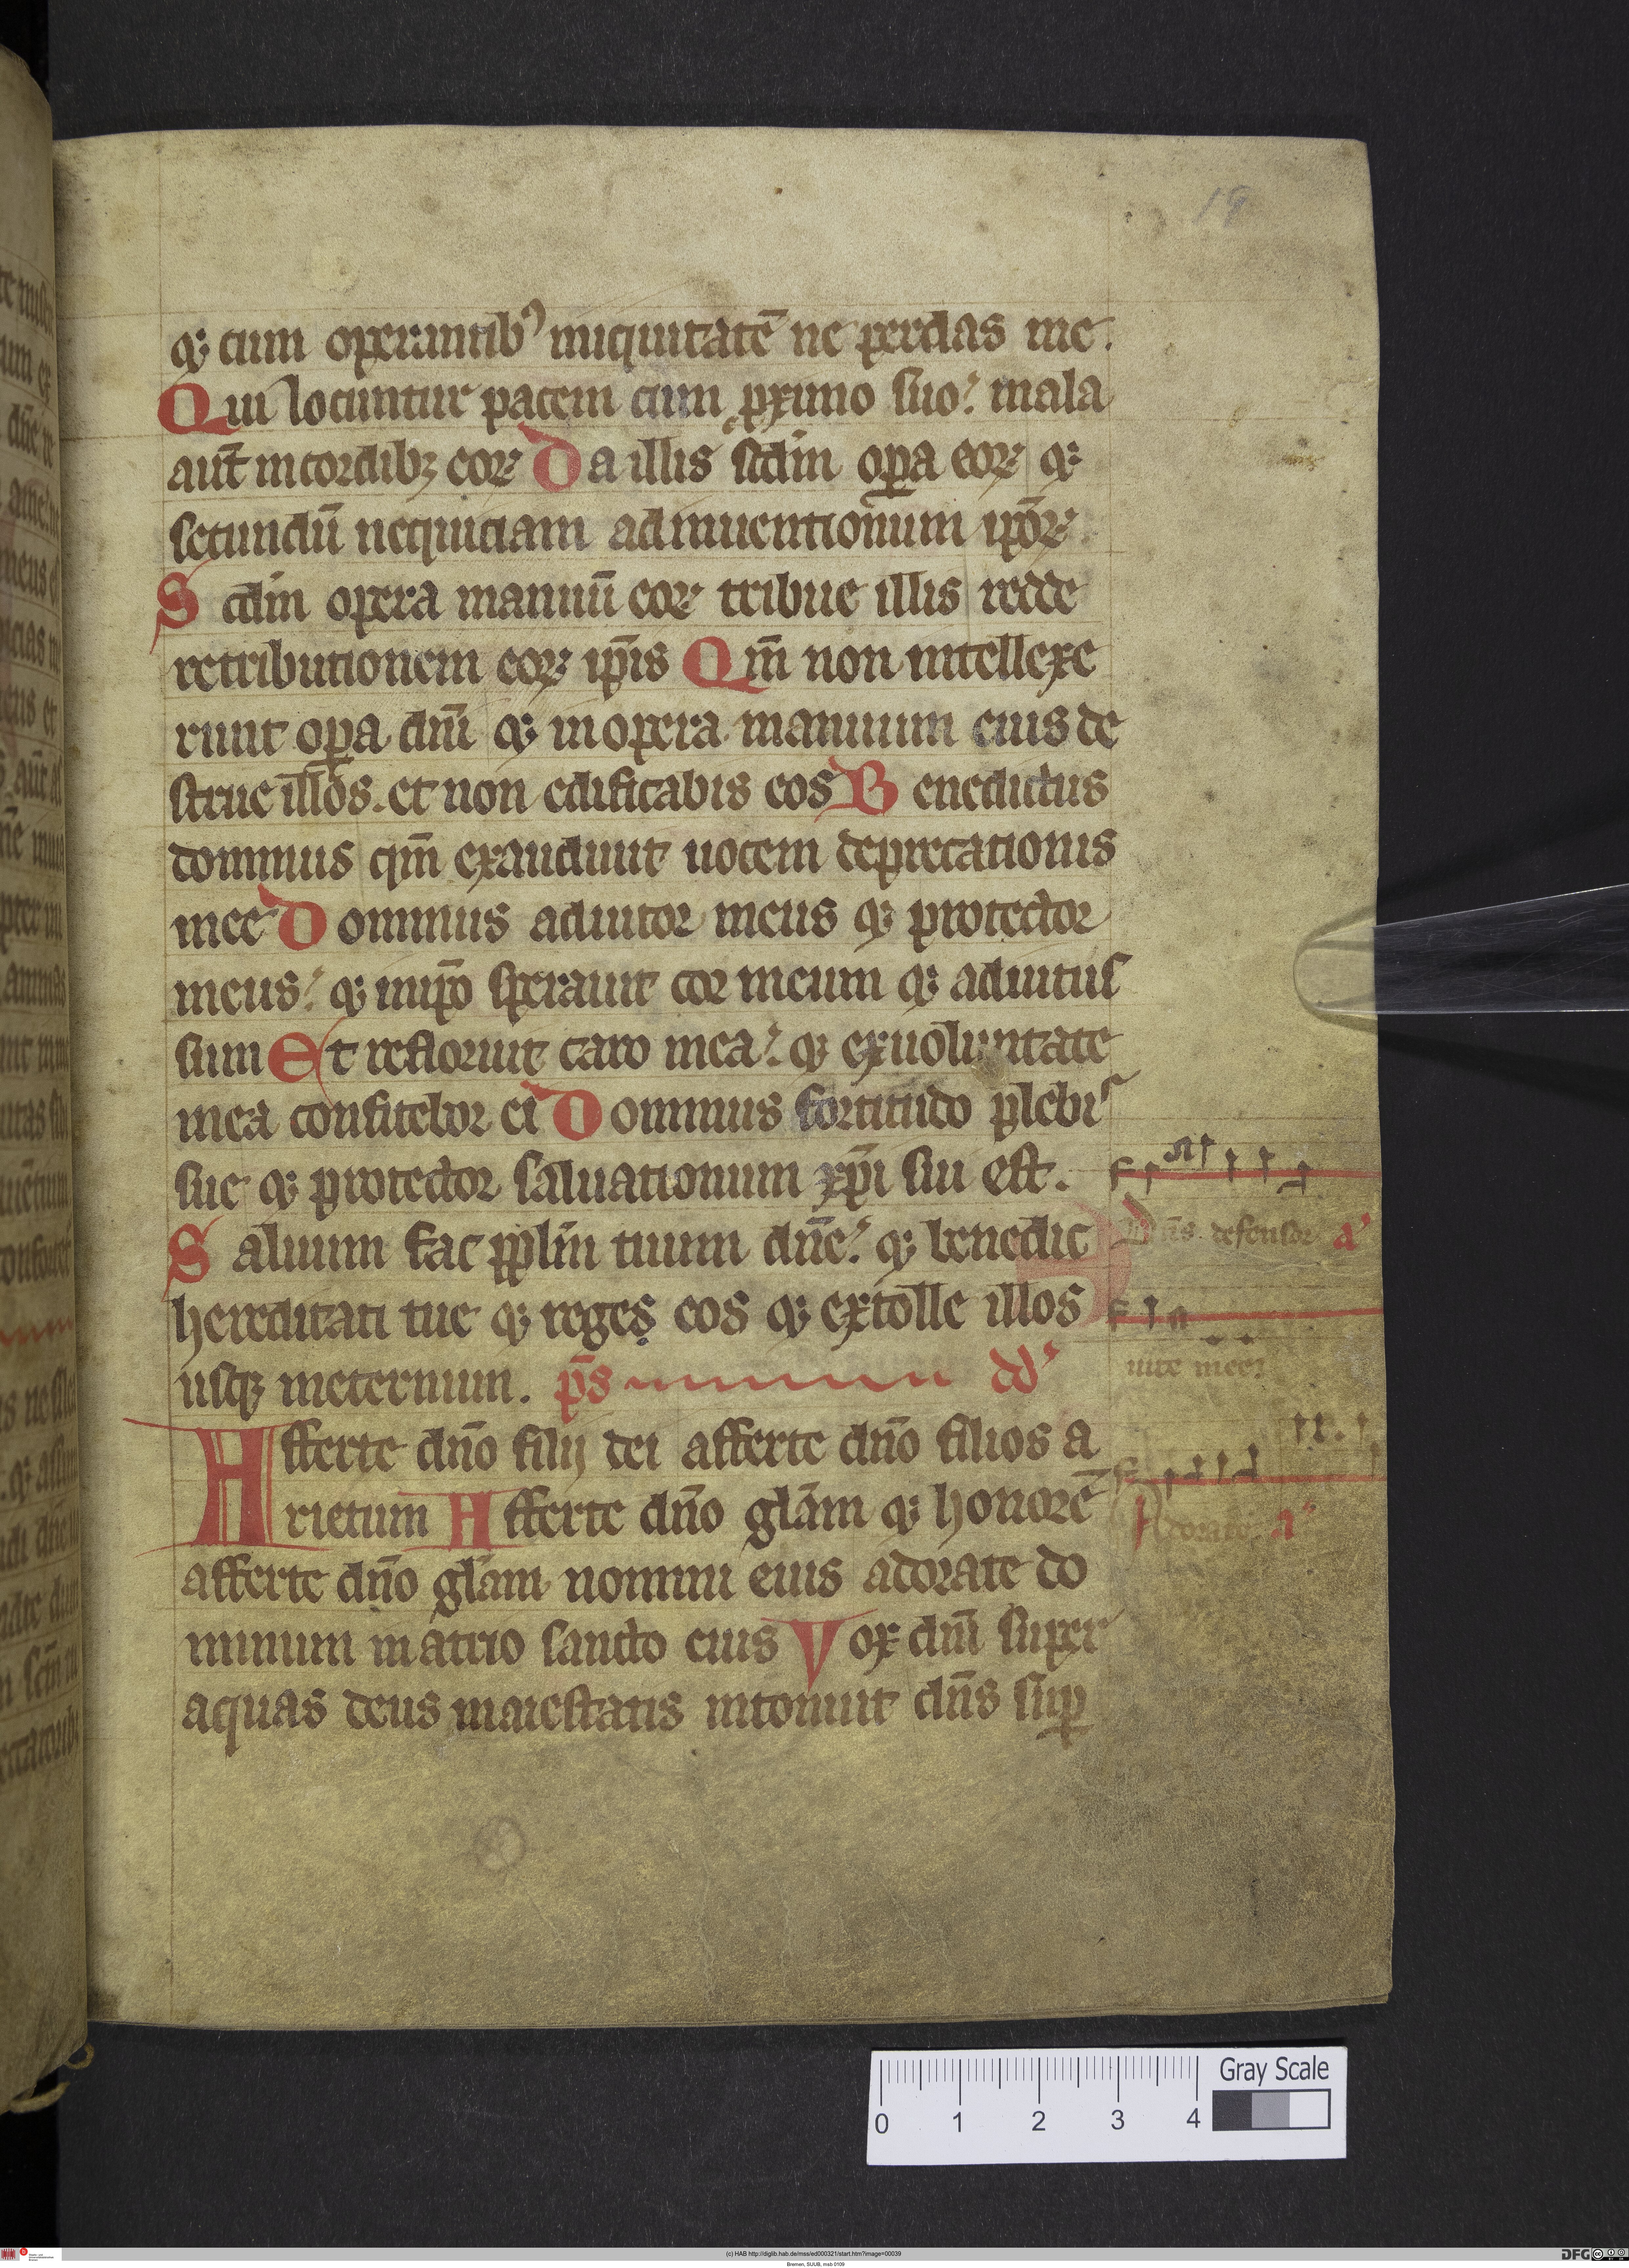 19
qꝫ cum operantib⁹ iniquitatē ne perdas me.
Qui locuntur pacem cum pximo suo. mala
aut̄ in cordibꝫ eoꝝ Da illis scd̄m oꝑa eoꝝ qꝫ
secundū nequiciam adinuentionum ip̄oꝝ
Scd̄m opera manuū eoꝝ tribue illis redde
retributionem eoꝝ ip̄is Qm̄ non intellexe
runt oꝑa dn̄i qꝫ in opera manuum eius de
strue illos. et non edificabis eos Benedictus
dominus qm̄ exaudiuit uocem deprecationis
mee Dominus adiutor meus qꝫ protector
meus. qꝫ in ip̄o sperauit cor meum qꝫ adiutus
sum Et refloruit caro mea. qꝫ ex uoluntate
mea confitebor ei Dominus fortitudo plebis
sue qꝫ protector saluationum xp̄i sui est.
Saluum fac pplm̄ tuum dn̄e. qꝫ benedic
Dn̄s defensor a
hereditati tue qꝫ reges eos qꝫ extolle illos
usqꝫ in eternum. p̄s dd
uite mee
Afferte dn̄o filij dei afferte dn̄o filios a
rietum Afferte dn̄o glām qꝫ honorē
Adorate a
afferte dn̄o glām nomini eius adorate do
minum in atrio sancto eius Vox dn̄i super
aquas deus maiestatis intonuit dn̄s suꝑ
Gray Scale
0 1 2 3 4
(c) HAB http://diglib.hab.de/mss/ed000321/start.htm?image=00039
Bremen, SUUB, msb 0109
DFG